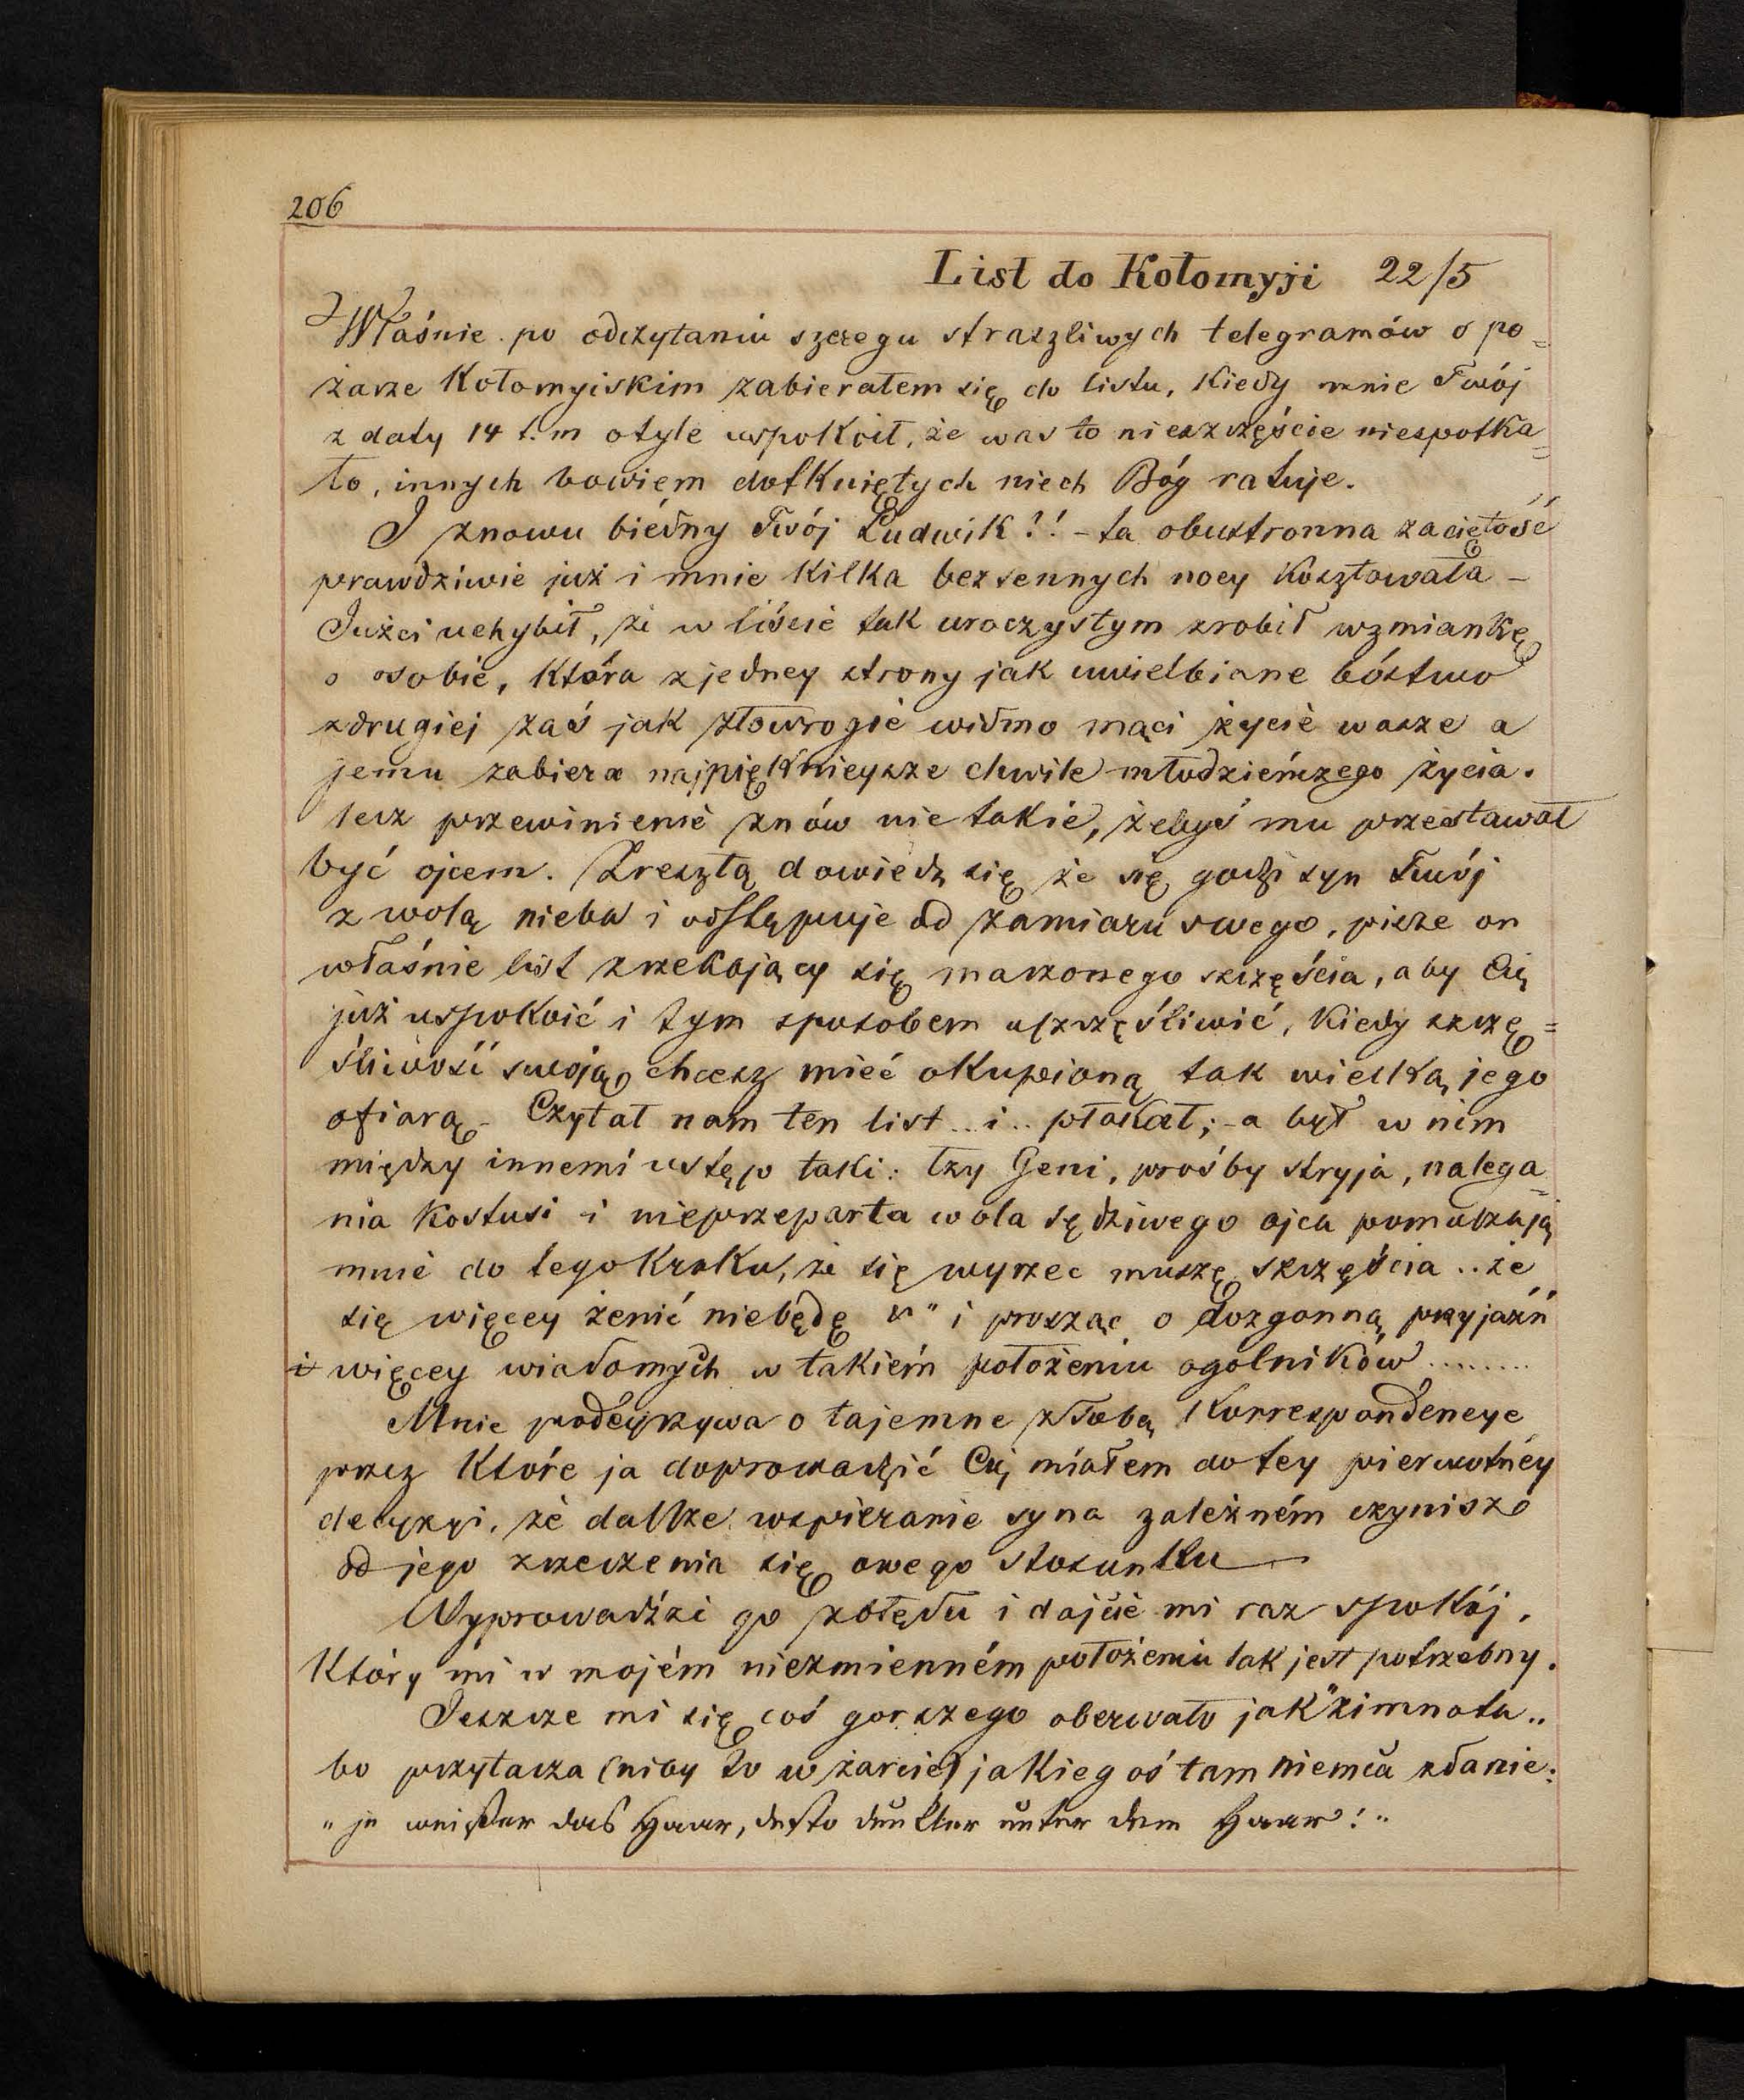 206
List do Kołomyji 22/5
Właśnie po odczytaniu szeregu straszliwych telegramów o po=
żarze Kołomyiskim zabierałem się do listu, kiedy mnie Twój
z daty 14 t.m otyle uspokoił, że was to nieszczęście niespotka=
ło, innych bowiem dotkniętych niech Bóg ratuje.
I znowu biédny Twój Ludwik?! - ta obustronna zaciętość
prawdziwie już i mnie kilka bezsennych nocy kosztowała -
Jużci uchybił, że w liście tak uroczystym zrobił wzmiankę
o osobie, która z jedney strony jak uwielbiane bóstwo
z drugiej zaś jak złowrogie widmo mąci życie wasze a
jemu zabiera najpięknieysze chwile młodzieńczego życia.
lecz przewinienie znów nie takie, żebyś mu przestawał
być ojcem. Zresztą dowiedz się że się godzi syn Twój
z wolą nieba i odstępuje od zamiaru swego, pisze on
właśnie list zrzekający się marzonego szczęścia, aby Cię
już uspokoić i tym sposobem uszczęśliwić, kiedy szczę=
śliwość swoją chcesz mieć okupioną tak wielką jego
ofiarą - Czytał nam ten list .. i .. płakał; - a był w nim
między innemi ustęp taki: łzy Geni, prośby stryja, nalega=
nia Kostusi i nieprzeparta wola sędziwego ojca pomuszają
mnie do tego kroku, że się wyrzec muszę szczęścia .. że
się więcey żenić niebędę " i prosząc o dozgonną przyjaźń
i więcey wiadomych w takiém położeniu ogólników ........
Mnie podéyrzywa o tajemne z Tobą Korrespondencye
przez które ja doprowadzić Cię miałem do tey pierwotnéy
decyzyi, że dalsze wspieranie syna zależném czynisz
od jego zrzeczenia się owego stosunku —
Wyprowadźże go z błędu i dajcie mi raz spokój,
który mi w mojém niezmienném położeniu tak jest potrzebny.
Jeszcze mi się coś gorszego oberwało jak "zimnota..
bo przytacza (niby to w żarcie) jakiegoś tam niemca zdanie:
"je weißer das Haar, desto dunkler unter dem Haar!"